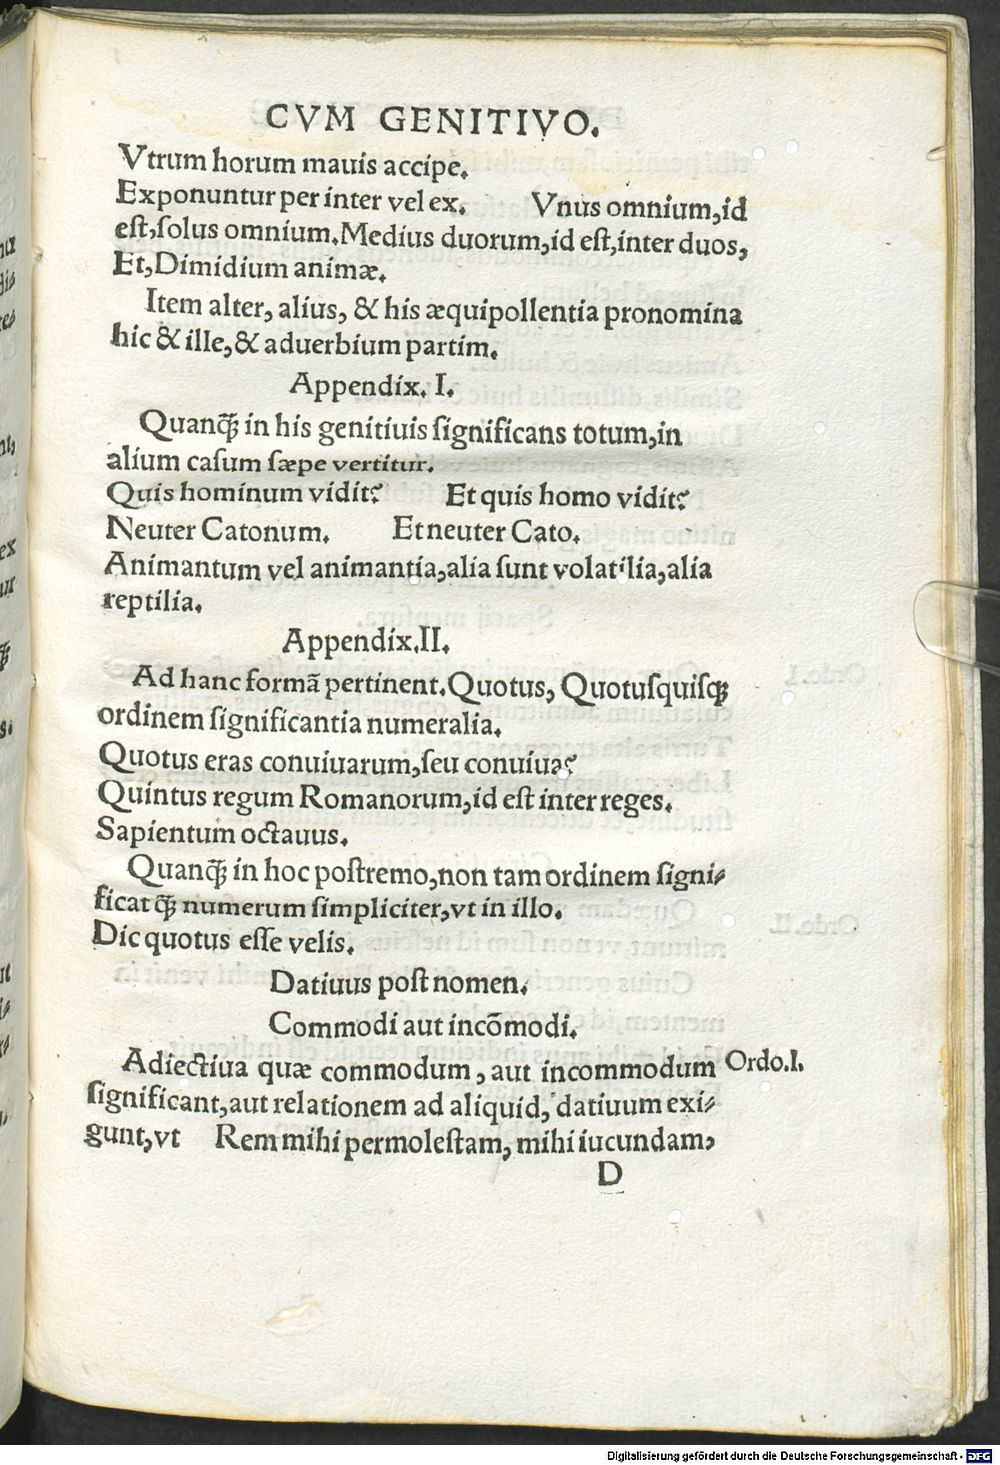 CVM GENITIVO.
Vtrum horum mauis accipe.
Exponuntur per inter vel ex. Vnus omnium, id
est, ſolus omnium. Medius duorum, id est, inter duos,
Et, Dimidium animæ.
Item alter, alius, & his æquipollentia pronomina
hic & ille, & aduerbium partim.
Appendix. I.
Quanq̃ in his genitiuis ſignificans totum, in
alium caſum ſæpe vertitur.
Quis hominum vidit? Et quis homo vidit?
Neuter Catonum. Et neuter Cato.
Animantum vel animantia, alia ſunt volatilia, alia
reptilia.
Appendix. II.
Ad hanc formā pertinent. Quotus, Quotuſquiſq;
ordinem ſignificantia numeralia.
Quotus eras conuiuarum, ſeu conuiua?
Quintus regum Romanorum, id est inter reges.
Sapientum octauus.
Quanq̃ in hoc postremo, non tam ordinem ſigni-
ficat q̃ numerum ſimpliciter, vt in illo.
Dic quotus eſſe velis.
Datiuus post nomen.
Commodi aut incōmodi.
Adiectiua quæ commodum, aut incommodum Ordo. I.
ſignificant, aut relationem ad aliquid, datiuum exi-
gunt, vt Rem mihi permolestam, mihi iucundam,
D
Digitalisierung gefördert durch die Deutsche Forschungsgemeinschaft - DFG